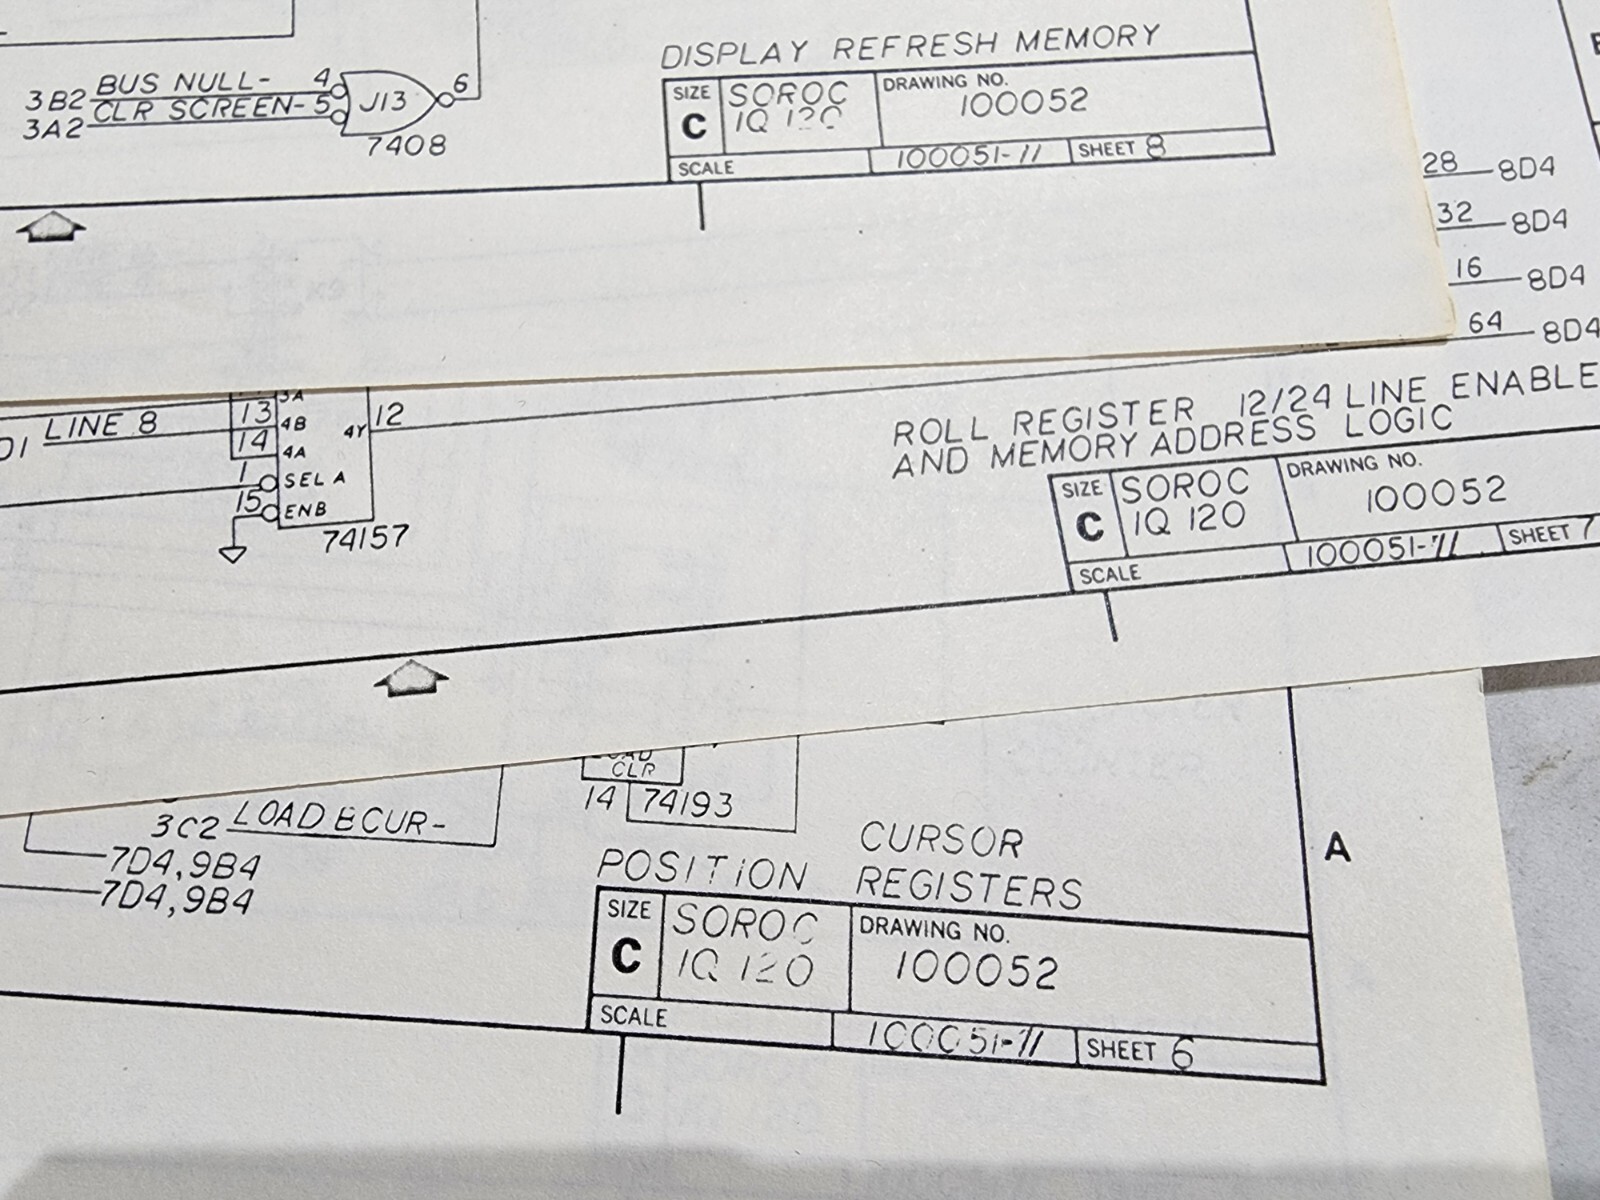 DISPLAY REFRESH MEMORY
3B2 BUS NULL- 4
3A2 CLR SCREEN- 5
J13
6
7408
SIZE
C
SOROC
IQ 120
DRAWING NO.
100052
SCALE
100051-11
SHEET 8
28 8D4
32 8D4
16 8D4
64 8D4
D1 LINE 8
3A
13
4B
14
4A
4Y
12
1
SEL A
15
ENB
74157
ROLL REGISTER 12/24 LINE ENABLE
AND MEMORY ADDRESS LOGIC
SIZE
C
SOROC
IQ 120
DRAWING NO.
100052
SCALE
100051-11
SHEET 7
CLR
14
74193
3C2 LOAD ECUR-
7D4,9B4
7D4,9B4
CURSOR
POSITION REGISTERS
A
SIZE
C
SOROC
IQ 120
DRAWING NO.
100052
SCALE
100051-11
SHEET 6